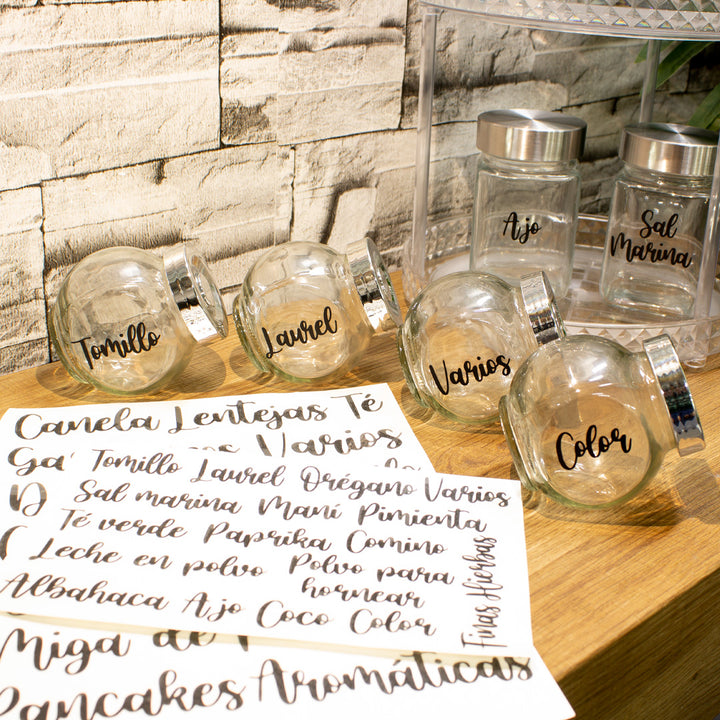 Ajo
Sal
Marina
Tomillo
Laurel
Varios
Color
Canela Lentejas Té
Varios
Tomillo Laurel Orégano Varios
Sal marina Maní Pimienta
Té verde Paprika Comino
Leche en polvo Polvo para
hornear
Albahaca Ajo Coco Color
Finas Hierbas
Miga de
Pancakes Aromáticas